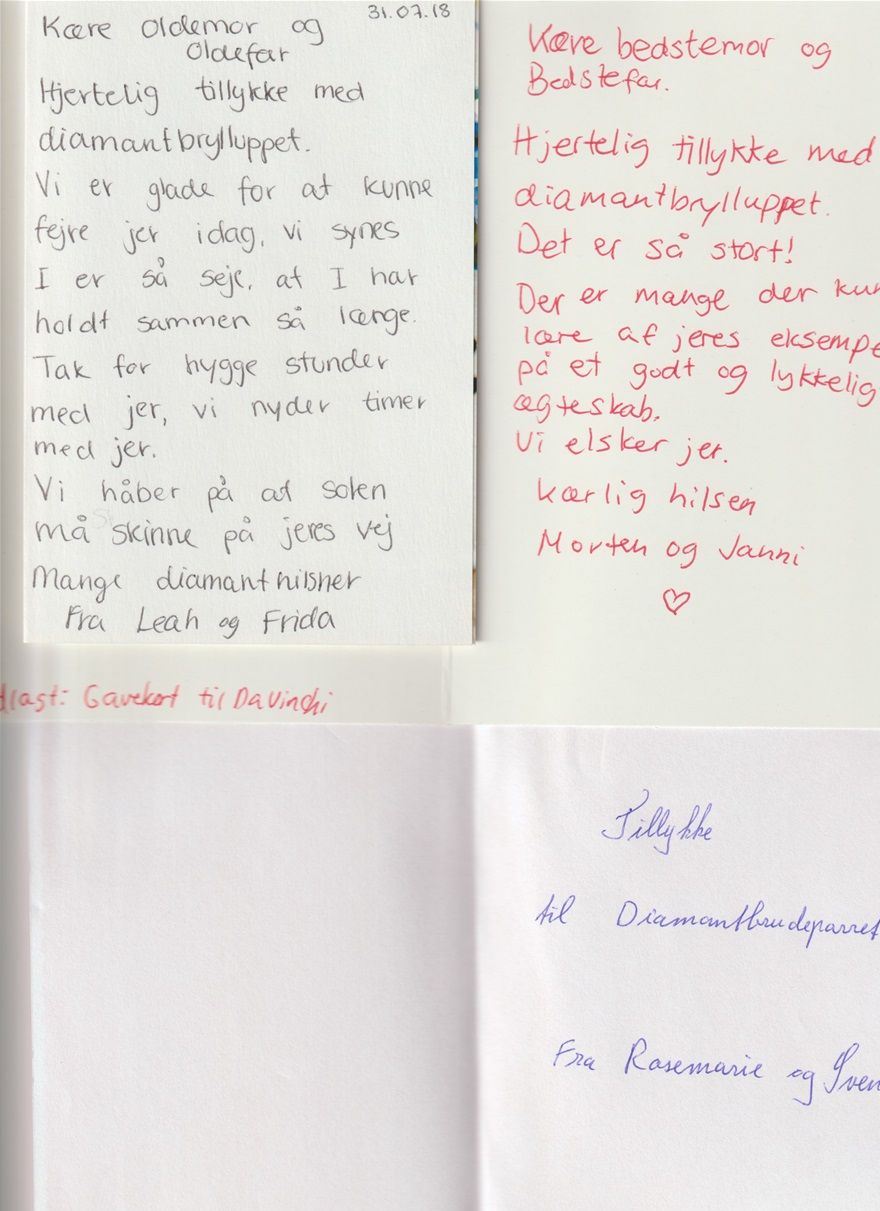 31.07.18
Kære oldemor og
Oldefar
Hjertelig tillykke med
diamantbrylluppet.
Vi er glade for at kunne
fejre jer idag, vi synes
I er så seje, at I har
holdt sammen så længe.
Tak for hygge stunder
med jer, vi nyder timer
med jer.
Vi håber på at solen
må skinne på jeres vej
Mange diamanthilsner
Fra Leah og Frida
Kære bedstemor og
Bedstefar.
Hjertelig tillykke med
diamantbrylluppet.
Det er så stort!
Der er mange der kun
lære af jeres eksempe
på et godt og lykkelig
ægteskab.
Vi elsker jer.
Kærlig hilsen
Morten og Janni
dlagt: Gavekort til DaVinchi
Tillykke
til Diamantbrudeparret
Fra Rosemarie og Sven